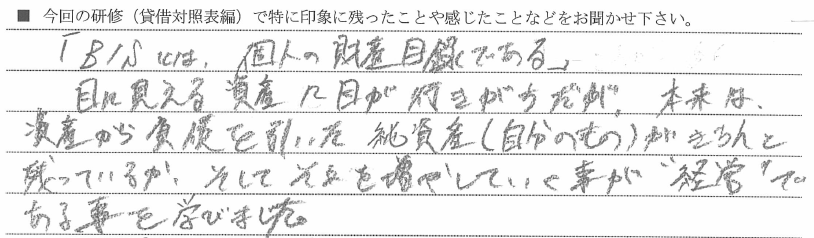 ■ 今回の研修（貸借対照表編）で特に印象に残ったことや感じたことなどをお聞かせ下さい。
「B/Sとは、個人の財産目録である」
目に見える資産に目が行きがちだが、本来は、
資産から負債を引いた純資産（自分のもの）がきちんと
残っているか、そしてそれを増やしていく事が"経営"で
ある事を学びました。